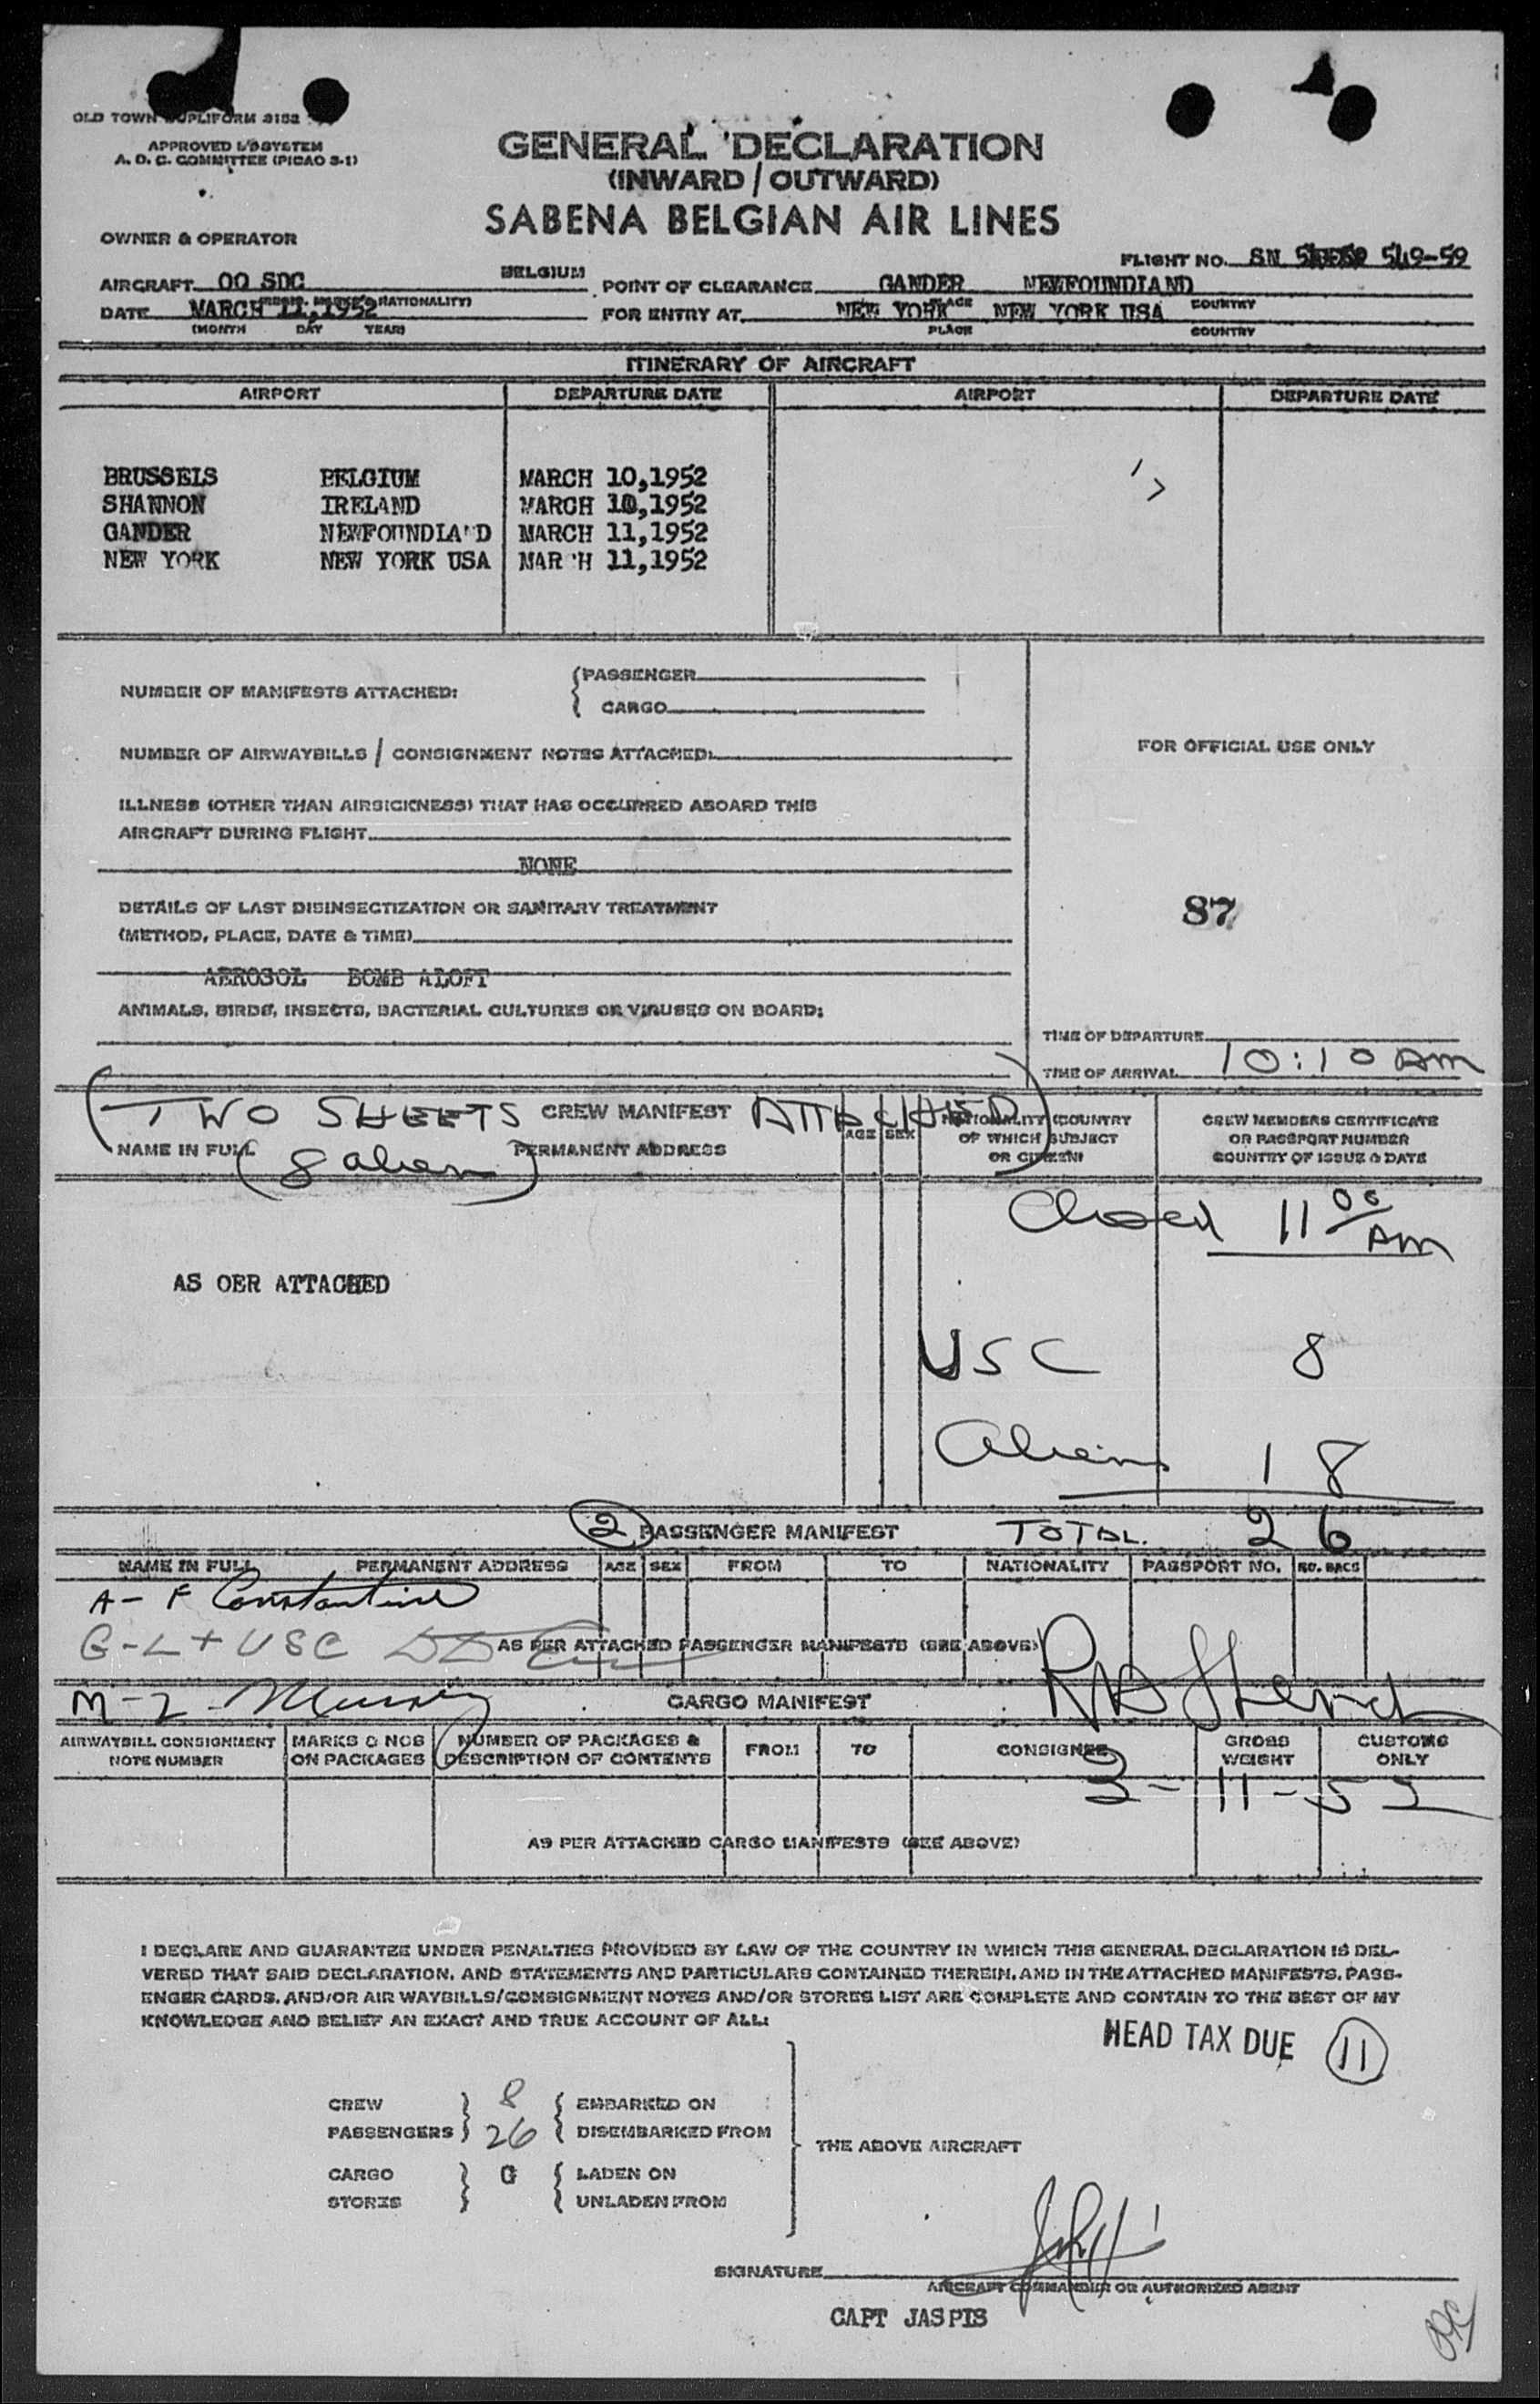 OLD TOWN DUPLIFORM 3152
APPROVED
A. O. C. COMMITTEE (PICAO 3-1)
GENERAL DECLARATION
(INWARD / OUTWARD)
SABENA BELGIAN AIR LINES
OWNER & OPERATOR
FLIGHT NO. SN 549-59
AIRCRAFT OO SDC BELGIUM
(REGIS. MARKS & NATIONALITY)
POINT OF CLEARANCE GANDER NEWFOUNDLAND
PLACE COUNTRY
DATE MARCH 11,1952
(MONTH DAY YEAR)
FOR ENTRY AT NEW YORK NEW YORK USA
PLACE COUNTRY
ITINERARY OF AIRCRAFT
AIRPORT DEPARTURE DATE AIRPORT DEPARTURE DATE
BRUSSELS BELGIUM MARCH 10,1952
SHANNON IRELAND MARCH 10,1952
GANDER NEWFOUNDLA D MARCH 11,1952
NEW YORK NEW YORK USA MAR H 11,1952
NUMBER OF MANIFESTS ATTACHED: PASSENGER
CARGO
NUMBER OF AIRWAYBILLS / CONSIGNMENT NOTES ATTACHED:
FOR OFFICIAL USE ONLY
ILLNESS (OTHER THAN AIRSICKNESS) THAT HAS OCCURRED ABOARD THIS
AIRCRAFT DURING FLIGHT
NONE
DETAILS OF LAST DISINSECTIZATION OR SANITARY TREATMENT
(METHOD, PLACE, DATE & TIME)
87
AEROSOL BOMB ALOFT
ANIMALS, BIRDS, INSECTS, BACTERIAL CULTURES OR VIRUSES ON BOARD:
TIME OF DEPARTURE
TIME OF ARRIVAL 10:10 AM
(TWO SHEETS ATTACHED)
CREW MANIFEST
(8 alien)
NAME IN FULL PERMANENT ADDRESS AGE SEX NATIONALITY (COUNTRY
OF WHICH SUBJECT
OR CITIZEN)
CREW MEMBERS CERTIFICATE
OR PASSPORT NUMBER
COUNTRY OF ISSUE & DATE
Closed 11 00 AM
AS OER ATTACHED
USC 8
Aliens 18
2 PASSENGER MANIFEST TOTAL. 26
NAME IN FULL PERMANENT ADDRESS AGE SEX FROM TO NATIONALITY PASSPORT NO. NO. BAGS
A - F Constantine
G - L + USC
AS PER ATTACHED PASSENGER MANIFESTS (SEE ABOVE)
M - Z
CARGO MANIFEST
AIRWAYBILL CONSIGNMENT
NOTE NUMBER
MARKS & NOS
ON PACKAGES
NUMBER OF PACKAGES &
DESCRIPTION OF CONTENTS
FROM TO CONSIGNEE
GROSS
WEIGHT
CUSTOMS
ONLY
3-11-52
AS PER ATTACHED CARGO MANIFESTS (SEE ABOVE)
I DECLARE AND GUARANTEE UNDER PENALTIES PROVIDED BY LAW OF THE COUNTRY IN WHICH THIS GENERAL DECLARATION IS DEL-
VERED THAT SAID DECLARATION, AND STATEMENTS AND PARTICULARS CONTAINED THEREIN, AND IN THE ATTACHED MANIFESTS, PASS-
ENGER CARDS, AND/OR AIR WAYBILLS/CONSIGNMENT NOTES AND/OR STORES LIST ARE COMPLETE AND CONTAIN TO THE BEST OF MY
KNOWLEDGE AND BELIEF AN EXACT AND TRUE ACCOUNT OF ALL:
HEAD TAX DUE 11
CREW 8 EMBARKED ON
PASSENGERS 26 DISEMBARKED FROM
THE ABOVE AIRCRAFT
CARGO 0 LADEN ON
STORES UNLADEN FROM
SIGNATURE
AIRCRAFT COMMANDER OR AUTHORIZED AGENT
CAPT JASPIS